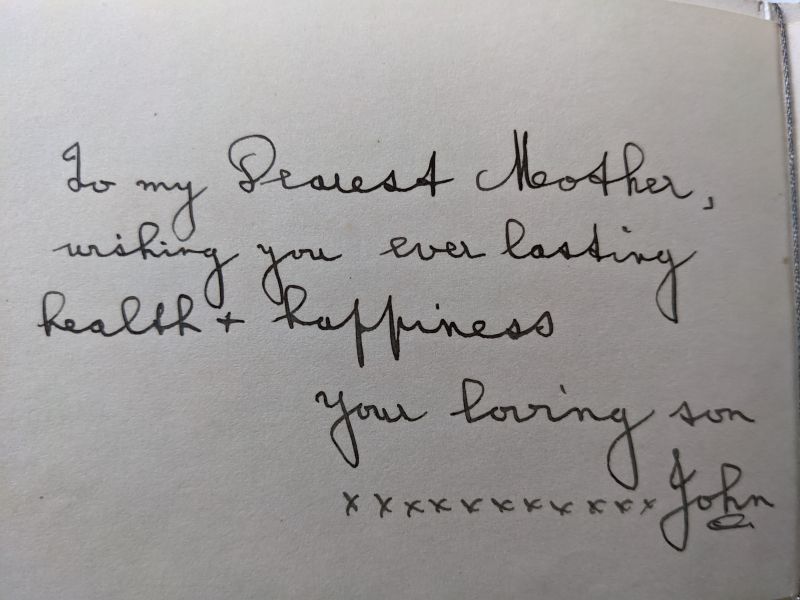 To my Dearest Mother,
wishing you ever lasting
health + happiness
Your loving son
xxxxxxxxxxx John